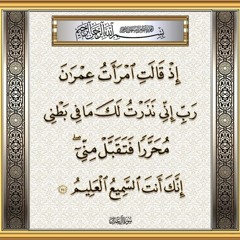 بِسْمِ ٱللَّهِ ٱلرَّحْمَٰنِ ٱلرَّحِيمِ
إِذْ قَالَتِ ٱمْرَأَتُ عِمْرَٰنَ
رَبِّ إِنِّي نَذَرْتُ لَكَ مَا فِي بَطْنِي
مُحَرَّرًا فَتَقَبَّلْ مِنِّيٓ ۖ
إِنَّكَ أَنتَ ٱلسَّمِيعُ ٱلْعَلِيمُ